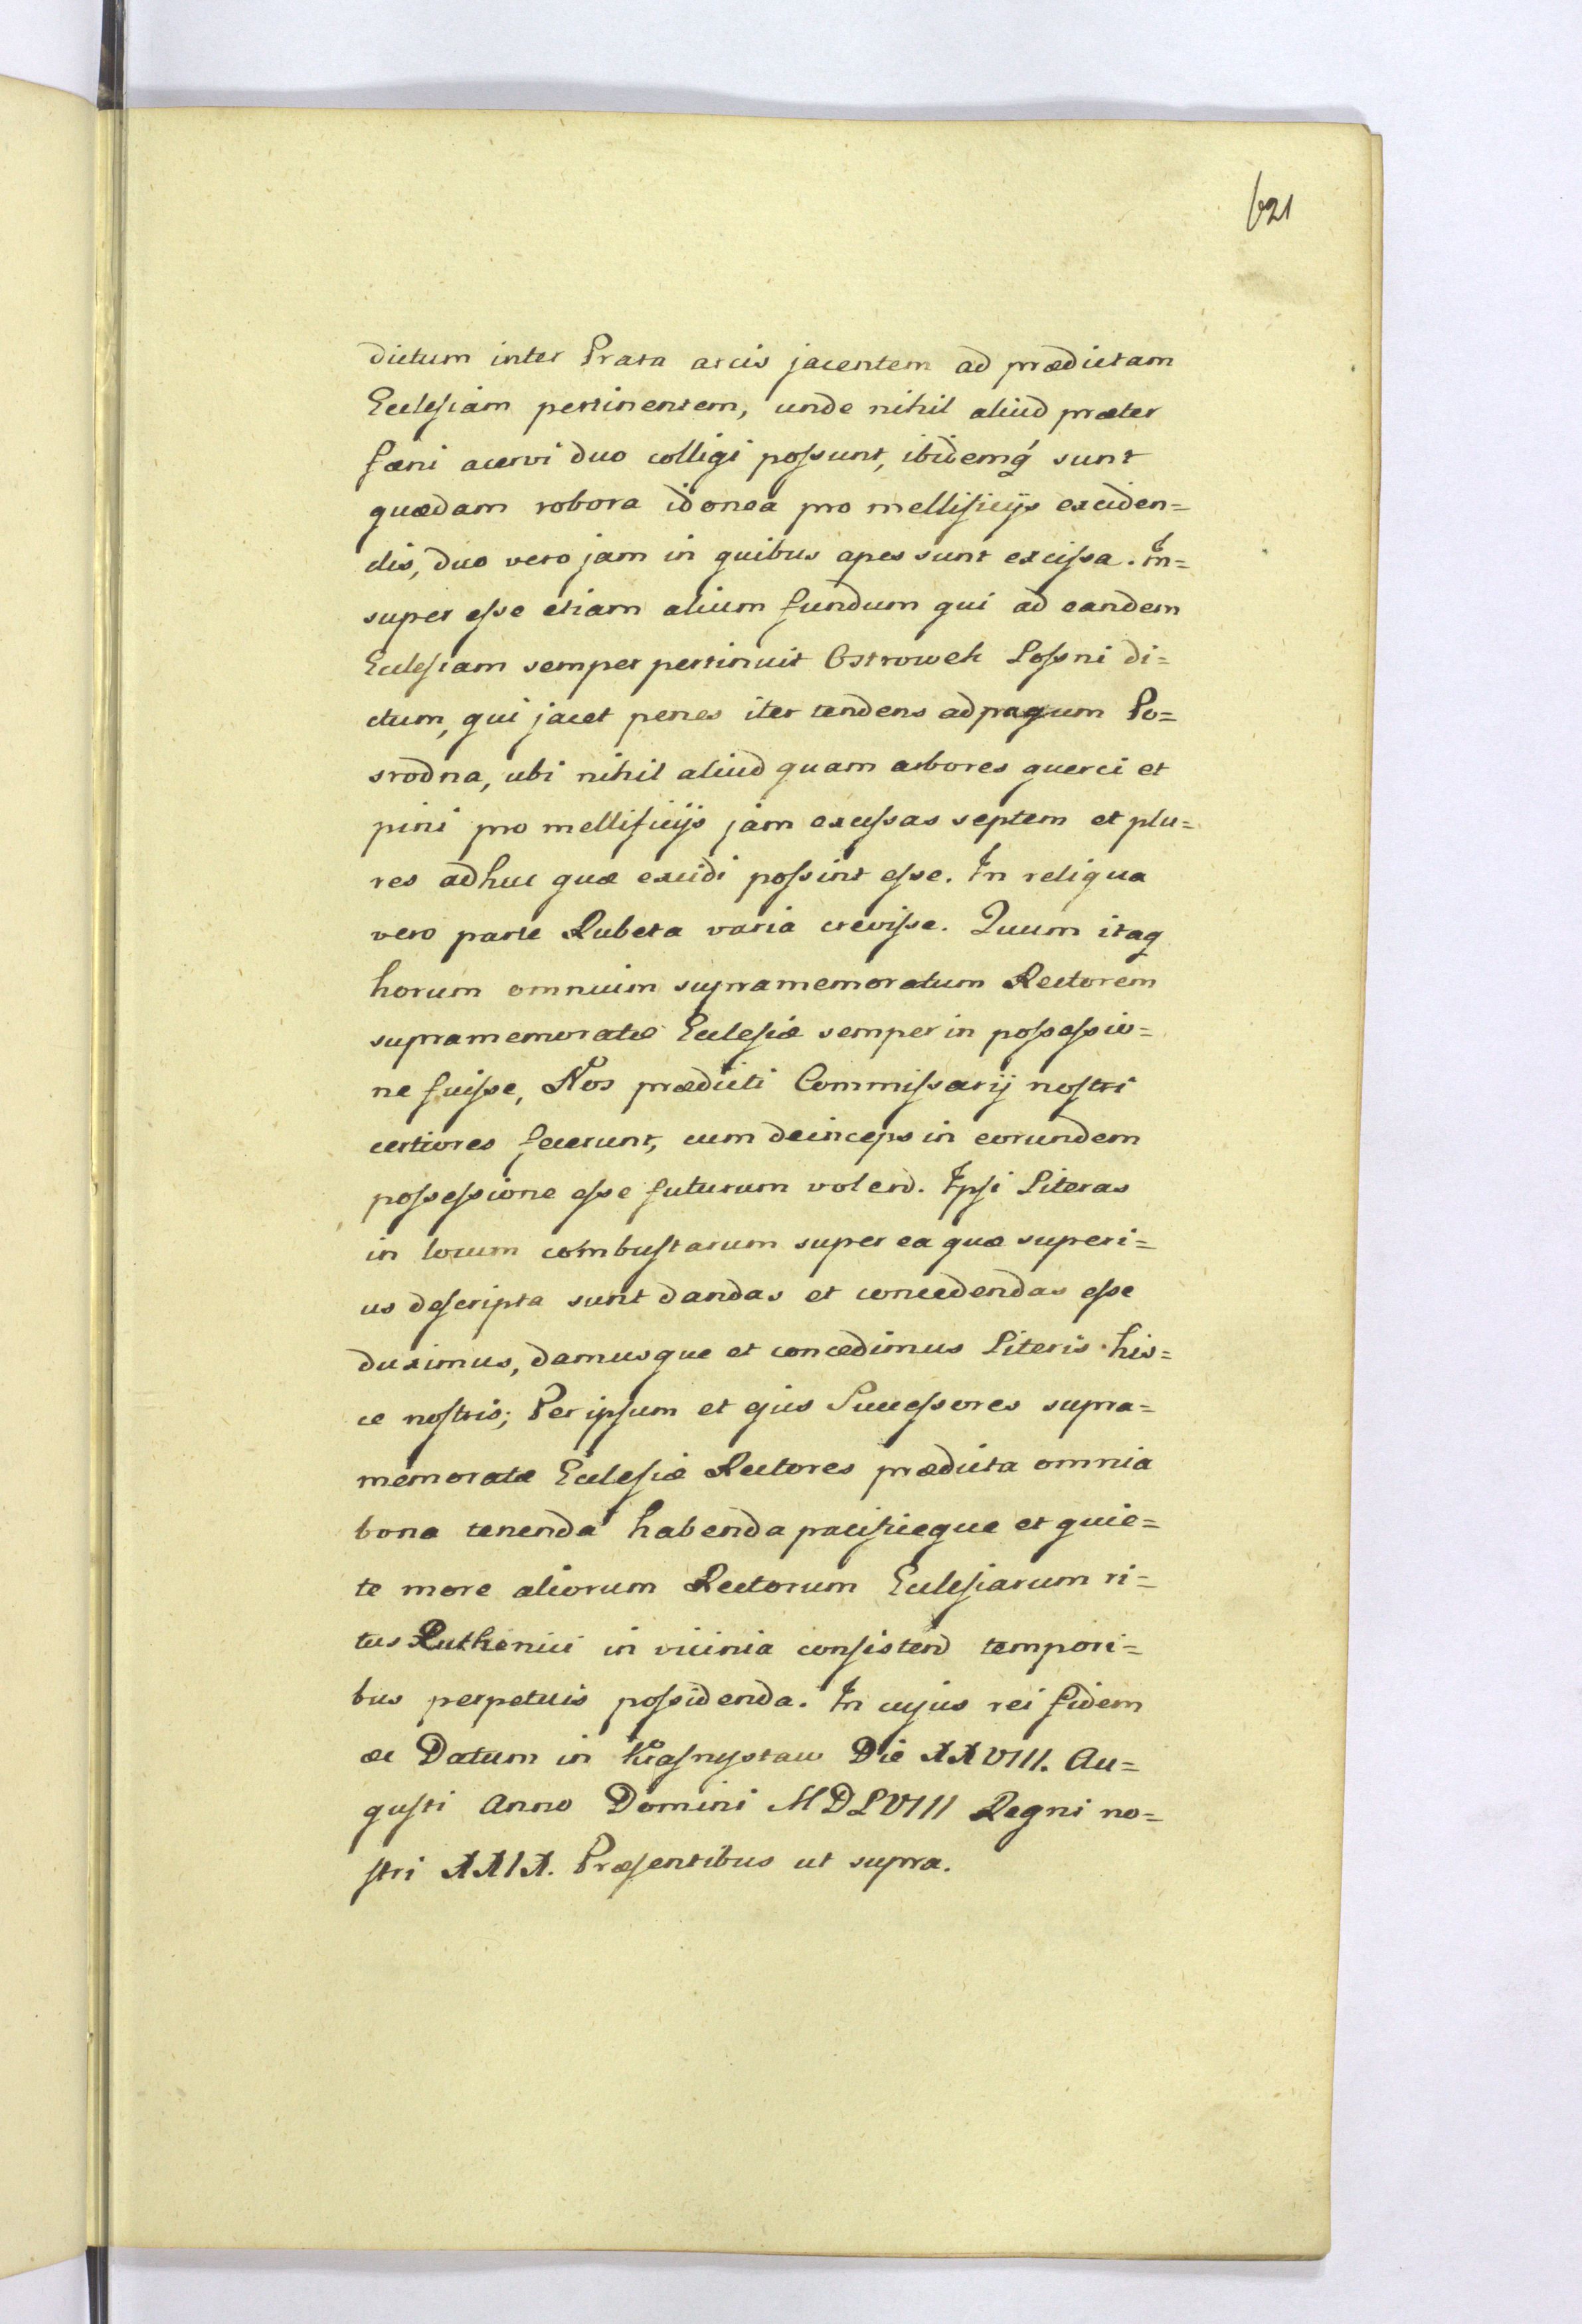 621
dictum inter Prata arcis jacentem ad prædictam
Ecclesiam pertinentem, unde nihil aliud præter
fæni acervi duo colligi possunt, ibidemq́ sunt
quædam robora idonea pro mellificijs exciden=
dis, duo vero jam in quibus apes sunt excissa. In=
super esse etiam alium fundum qui ad eandem
Eclesiam semper pertinuit Ostroweh Sossni di=
ctum, qui jacet penes iter tendens ad pagum Po=
srodna, ubi nihil aliud quam arbores querci et
pini pro mellificijs jam excissas septem et plu=
res adhuc quæ excidi possint esse. In reliqua
vero parte Rubeta varia crevisse. Quum itaq
horum omnium supramemoratum Rectorem
supramemoratæ Ecclesiæ semper in possessio=
ne fuisse, Nos prædicti Commissarij nostri
certiores fecerunt, cum deinceps in eorundem
possessione esse futurum volend. Ipsi Literas
in locum combustarum super ea quæ superi=
us descripta sunt dandas et concedendas esse
duximus, damusque et concedimus Literis his=
ce nostris; Per ipsum et ejus Successores supra=
memoratæ Ecclesiæ Rectores prædicta omnia
bona tenenda habenda pacificeque et quie=
te more aliorum Rectorum Ecclesiarum ri=
tus Ruthenici in vicinia consistend tempori=
bus perpetuis possidenda. In cujus rei fidem
æc Datum in Krasnystaw Die XXVIII. Au=
gusti Anno Domini MDLVIII Regni no=
stri XXIX. Præsentibus ut supra.